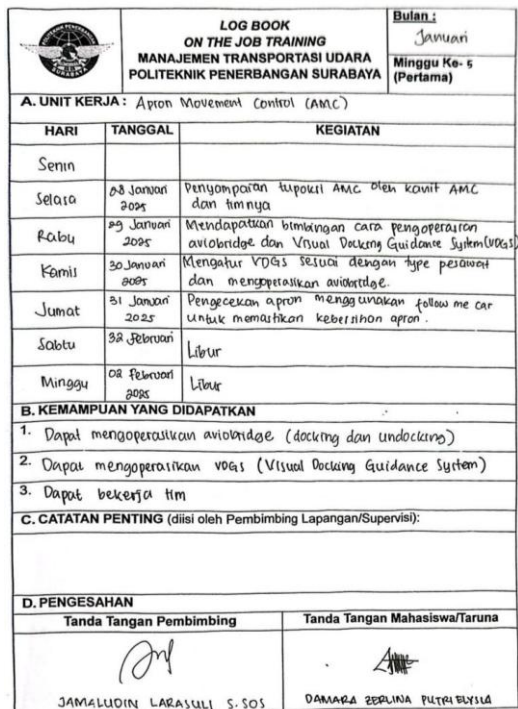 LOG BOOK
ON THE JOB TRAINING
MANAJEMEN TRANSPORTASI UDARA
POLITEKNIK PENERBANGAN SURABAYA
Bulan :
Januari
Minggu Ke- 5
(Pertama)
A. UNIT KERJA : Apron Movement Control (AMC)
HARI TANGGAL KEGIATAN
Senin
Selasa 28 Januari 2025 Penyampaian tupoksi AMC oleh kanit AMC
dan timnya
Rabu 29 Januari 2025 Mendapatkan bimbingan cara pengoperasian
aviobridge dan Visual Docking Guidance System (VDGS)
Kamis 30 Januari 2025 Mengatur VDGS sesuai dengan type pesawat
dan mengoperasikan aviobridge.
Jumat 31 Januari 2025 Pengecekan apron menggunakan follow me car
untuk memastikan kebersihan apron.
Sabtu 32 Februari Libur
Minggu 02 Februari 2025 Libur
B. KEMAMPUAN YANG DIDAPATKAN
1. Dapat mengoperasikan aviobridge (docking dan undocking)
2. Dapat mengoperasikan VDGS (Visual Docking Guidance System)
3. Dapat bekerja tim
C. CATATAN PENTING (diisi oleh Pembimbing Lapangan/Supervisi):
D. PENGESAHAN
Tanda Tangan Pembimbing Tanda Tangan Mahasiswa/Taruna
JAMALUDIN LARASULI S.SOS DAMARA ZERLINA PUTRI ELYSIA